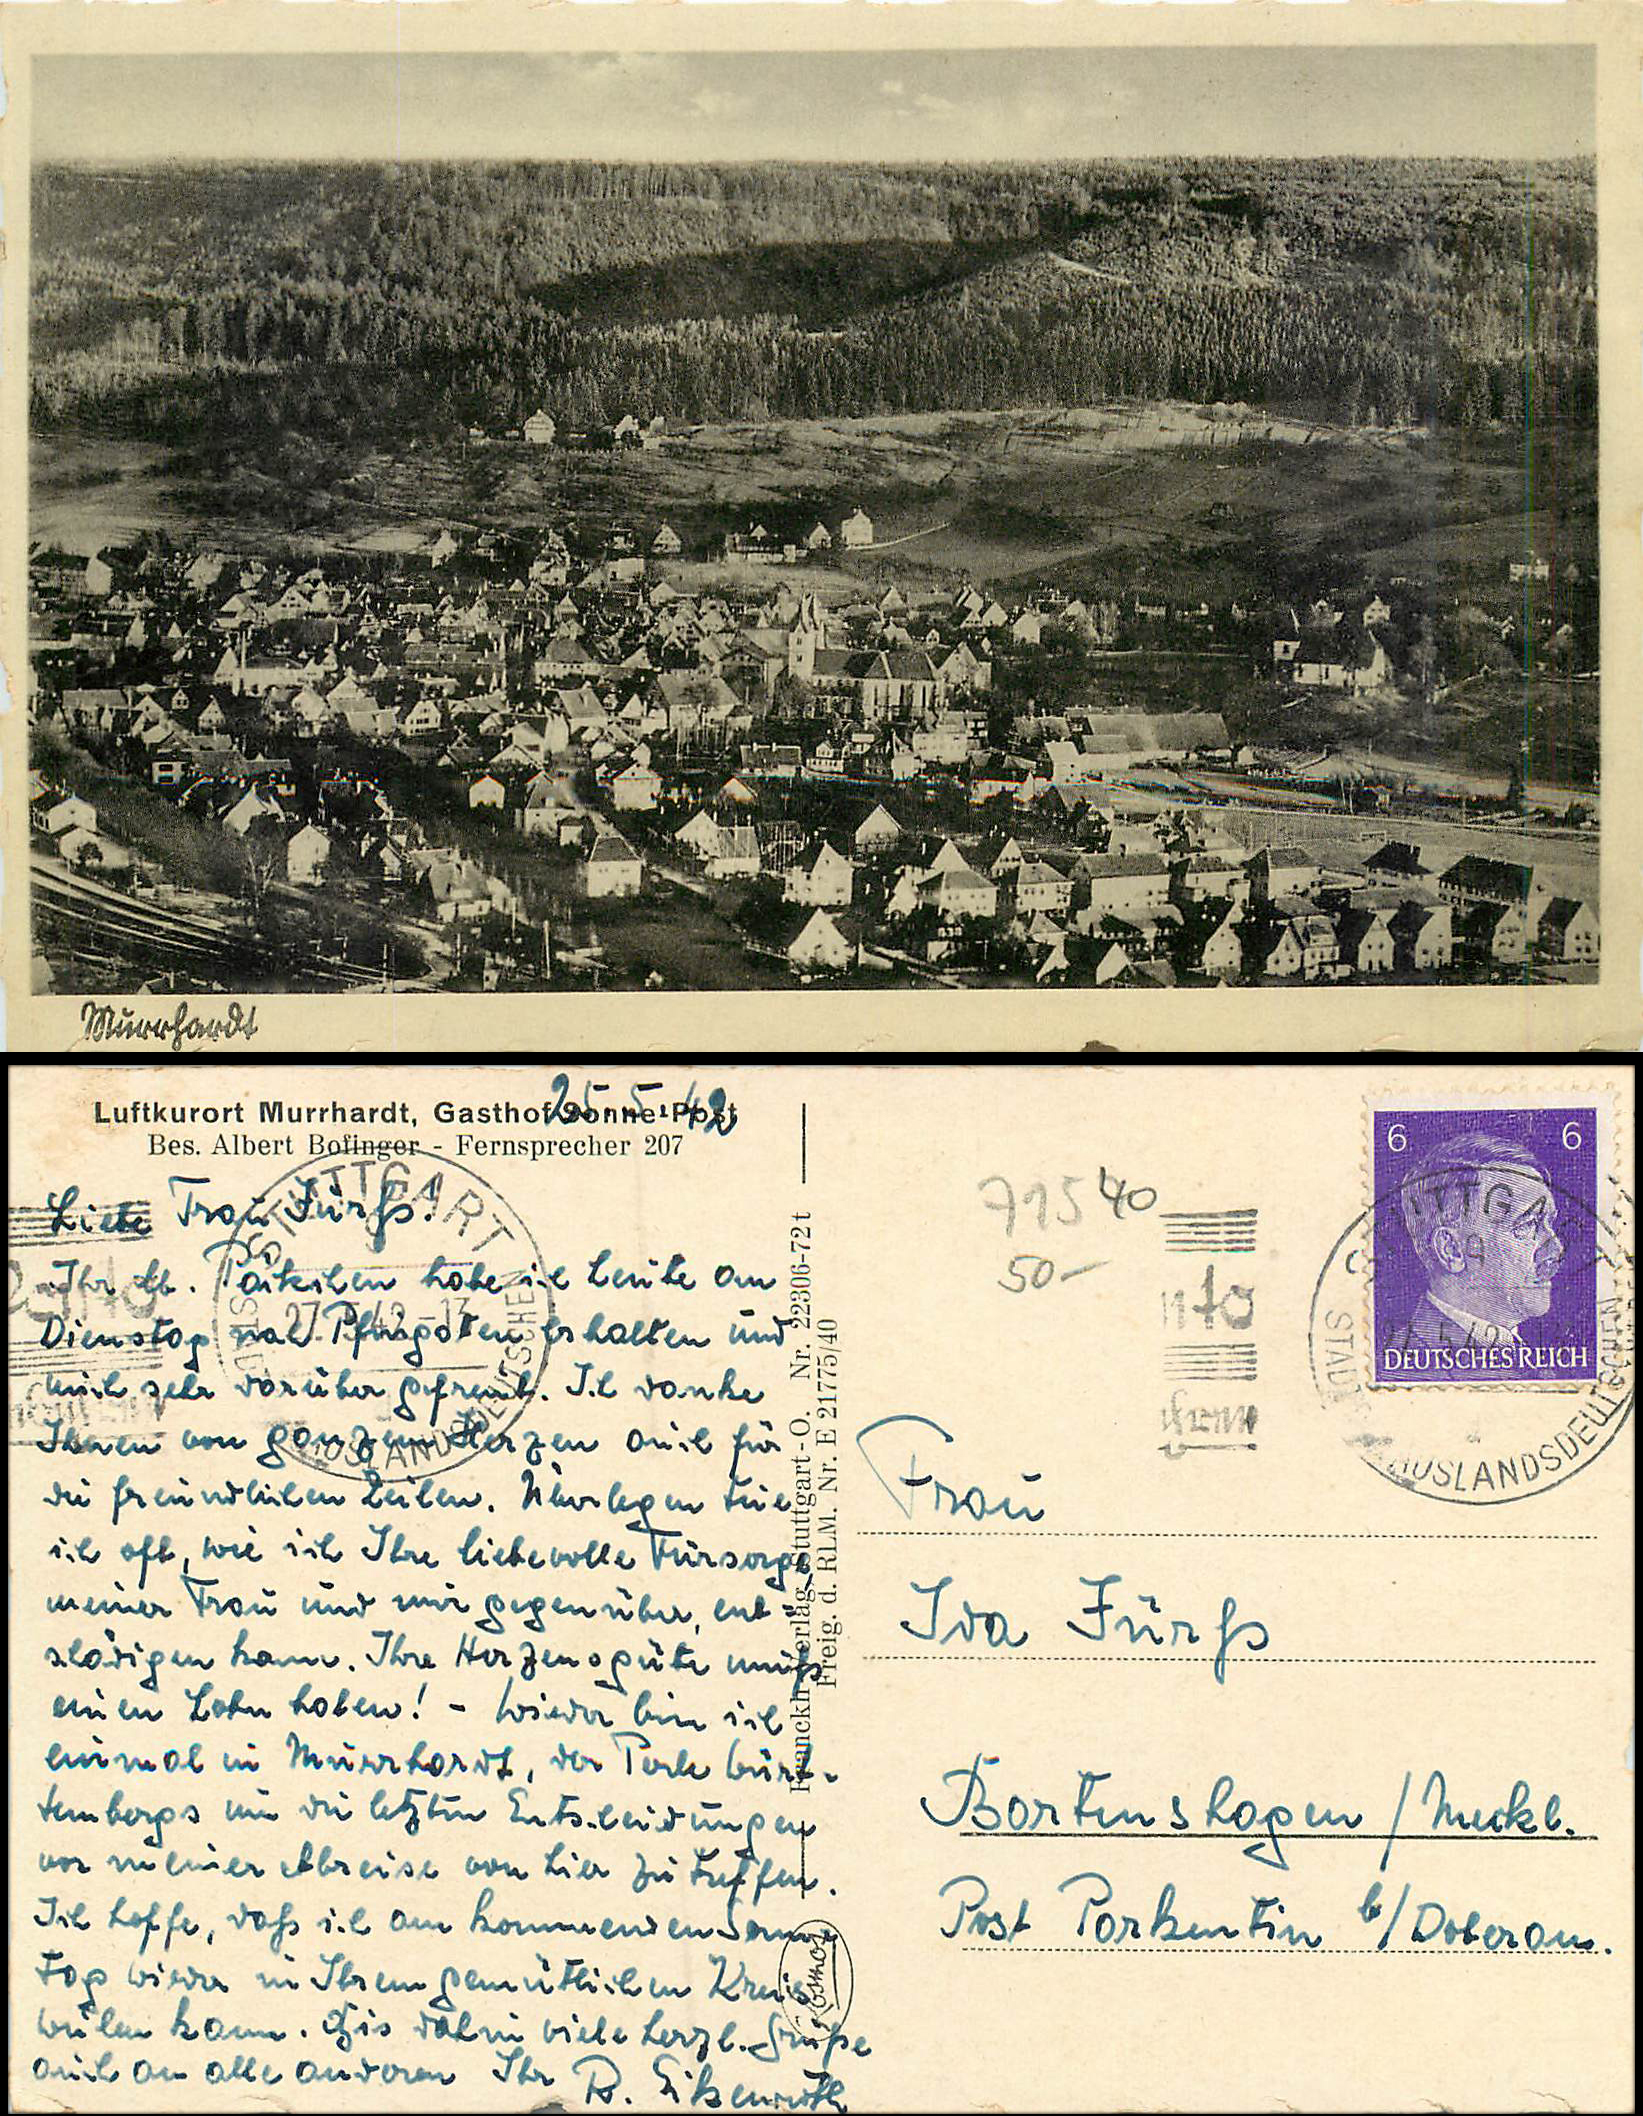 Murrhardt
Luftkurort Murrhardt, Gasthof Sonne-Post
25.5.42
Bes. Albert Bofinger - Fernsprecher 207
Liebe Frau Fürgs!
Ihr lb. Päckchen habe ich heute am
Dienstag nach Pfingsten erhalten und
mich sehr darüber gefreut. Ich danke
Ihnen von ganzem Herzen auch für
die freundlichen Zeilen. Überlegen tue
ich oft, wie ich Ihre liebevolle Fürsorge,
meiner Frau und mir gegenüber, ent-
schädigen kann. Ihre Herzensgüte muß
einen Lohn haben! - Wieder bin ich
einmal in Murrhardt, der Perle Würt-
tembergs um die letzten Entscheidungen
vor meiner Abreise von hier zu treffen.
Ich hoffe, daß ich am kommenden Sonn-
tag wieder in Ihrem gemütlichen Kreis
weilen kann. Bis dahin viele herzl. Grüße
auch an alle anderen Ihr
STUTTGART
27.5.42-13
STADT DER AUSLANDSDEUTSCHEN
Franckh-Verlag, Stuttgart-O. Nr. 22306-72t
Freig. d. RLM. Nr. E 21775/40
Kosmos
715 40
50-
6 6
DEUTSCHES REICH
STUTTGART
9
27.5.42
STADT DER AUSLANDSDEUTSCHEN
Frau
Ida Fürgs
Bartenshagen / Meckl.
Post Parkentin b/Doberan.